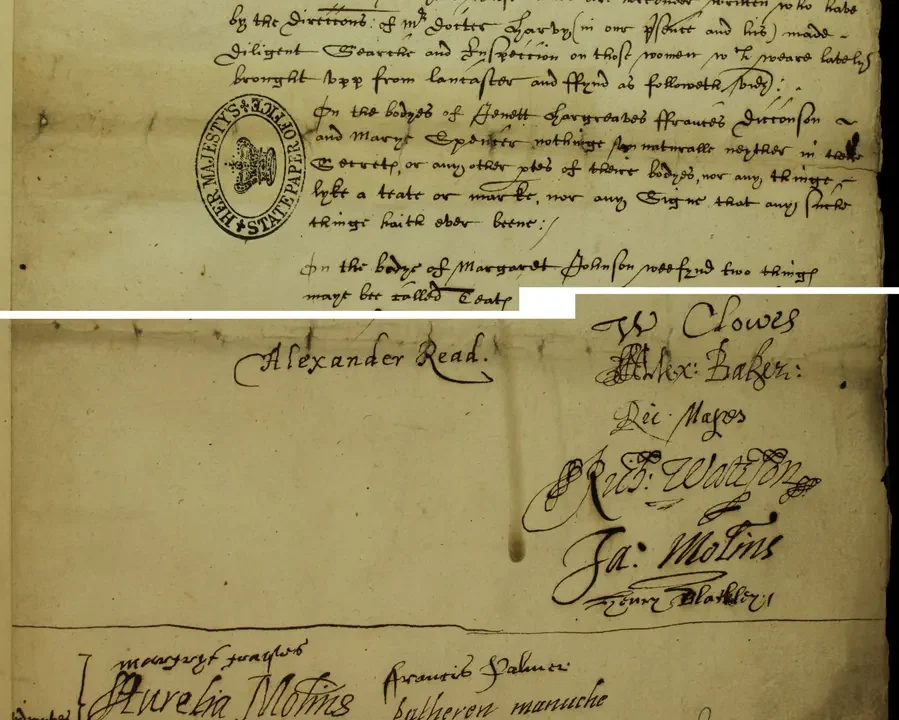 by the direccons of mr Docter Harvy (in our p̱sence and his) made
Diligent Searche and Inspeccion on those women wch weare lately
brought vpp from lancaster and ffynd as followeth, vidz:
On the bodyes of Jenett Hargreaves ffrances Dicconson
and Marye Spencer nothinge vnnaturalle neyther in their
Secrets, or any other ptes of theire bodyes, nor any thinge
lyke a teate or marke, nor any Signe that any suche
thinge haith ever beene:/
On the bodye of Margaret Johnson wee fynd two things
maye bee called Teats
HER MAJESTY'S STATE PAPER OFFICE
W Clowes
Alexander Read.
Alex: Baker:
Ric: Mapes
Rich: Wattson
Ja: Molins
Henry Blackley:
Aurelia Molins
Francis Palmer
katheren manuche